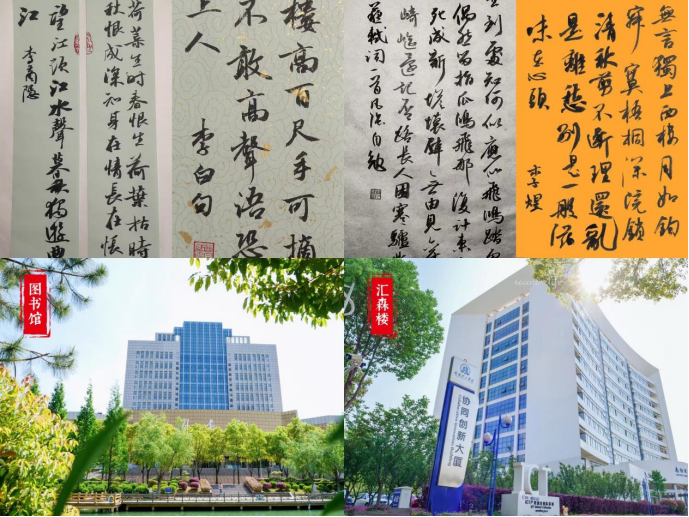 荷葉生时春恨生荷葉枯時
秋恨成深知身在情長在悵
望江頭江水聲暮秋獨遊曲
江 李商隐
樓高百尺手可摘
不敢高聲語恐
上人
李白句
生到處知何似應似飛鴻踏
偶然留指爪鴻飛那復計東
死成新塔壞壁無由見
崎嶇還記否路長人困蹇驢
無言獨上西樓月如鈎
寂寞梧桐深院鎖
清秋剪不斷理還亂
是離愁别是一般滋
味在心頭
李煜
图书馆
汇森楼
协同创新大厦